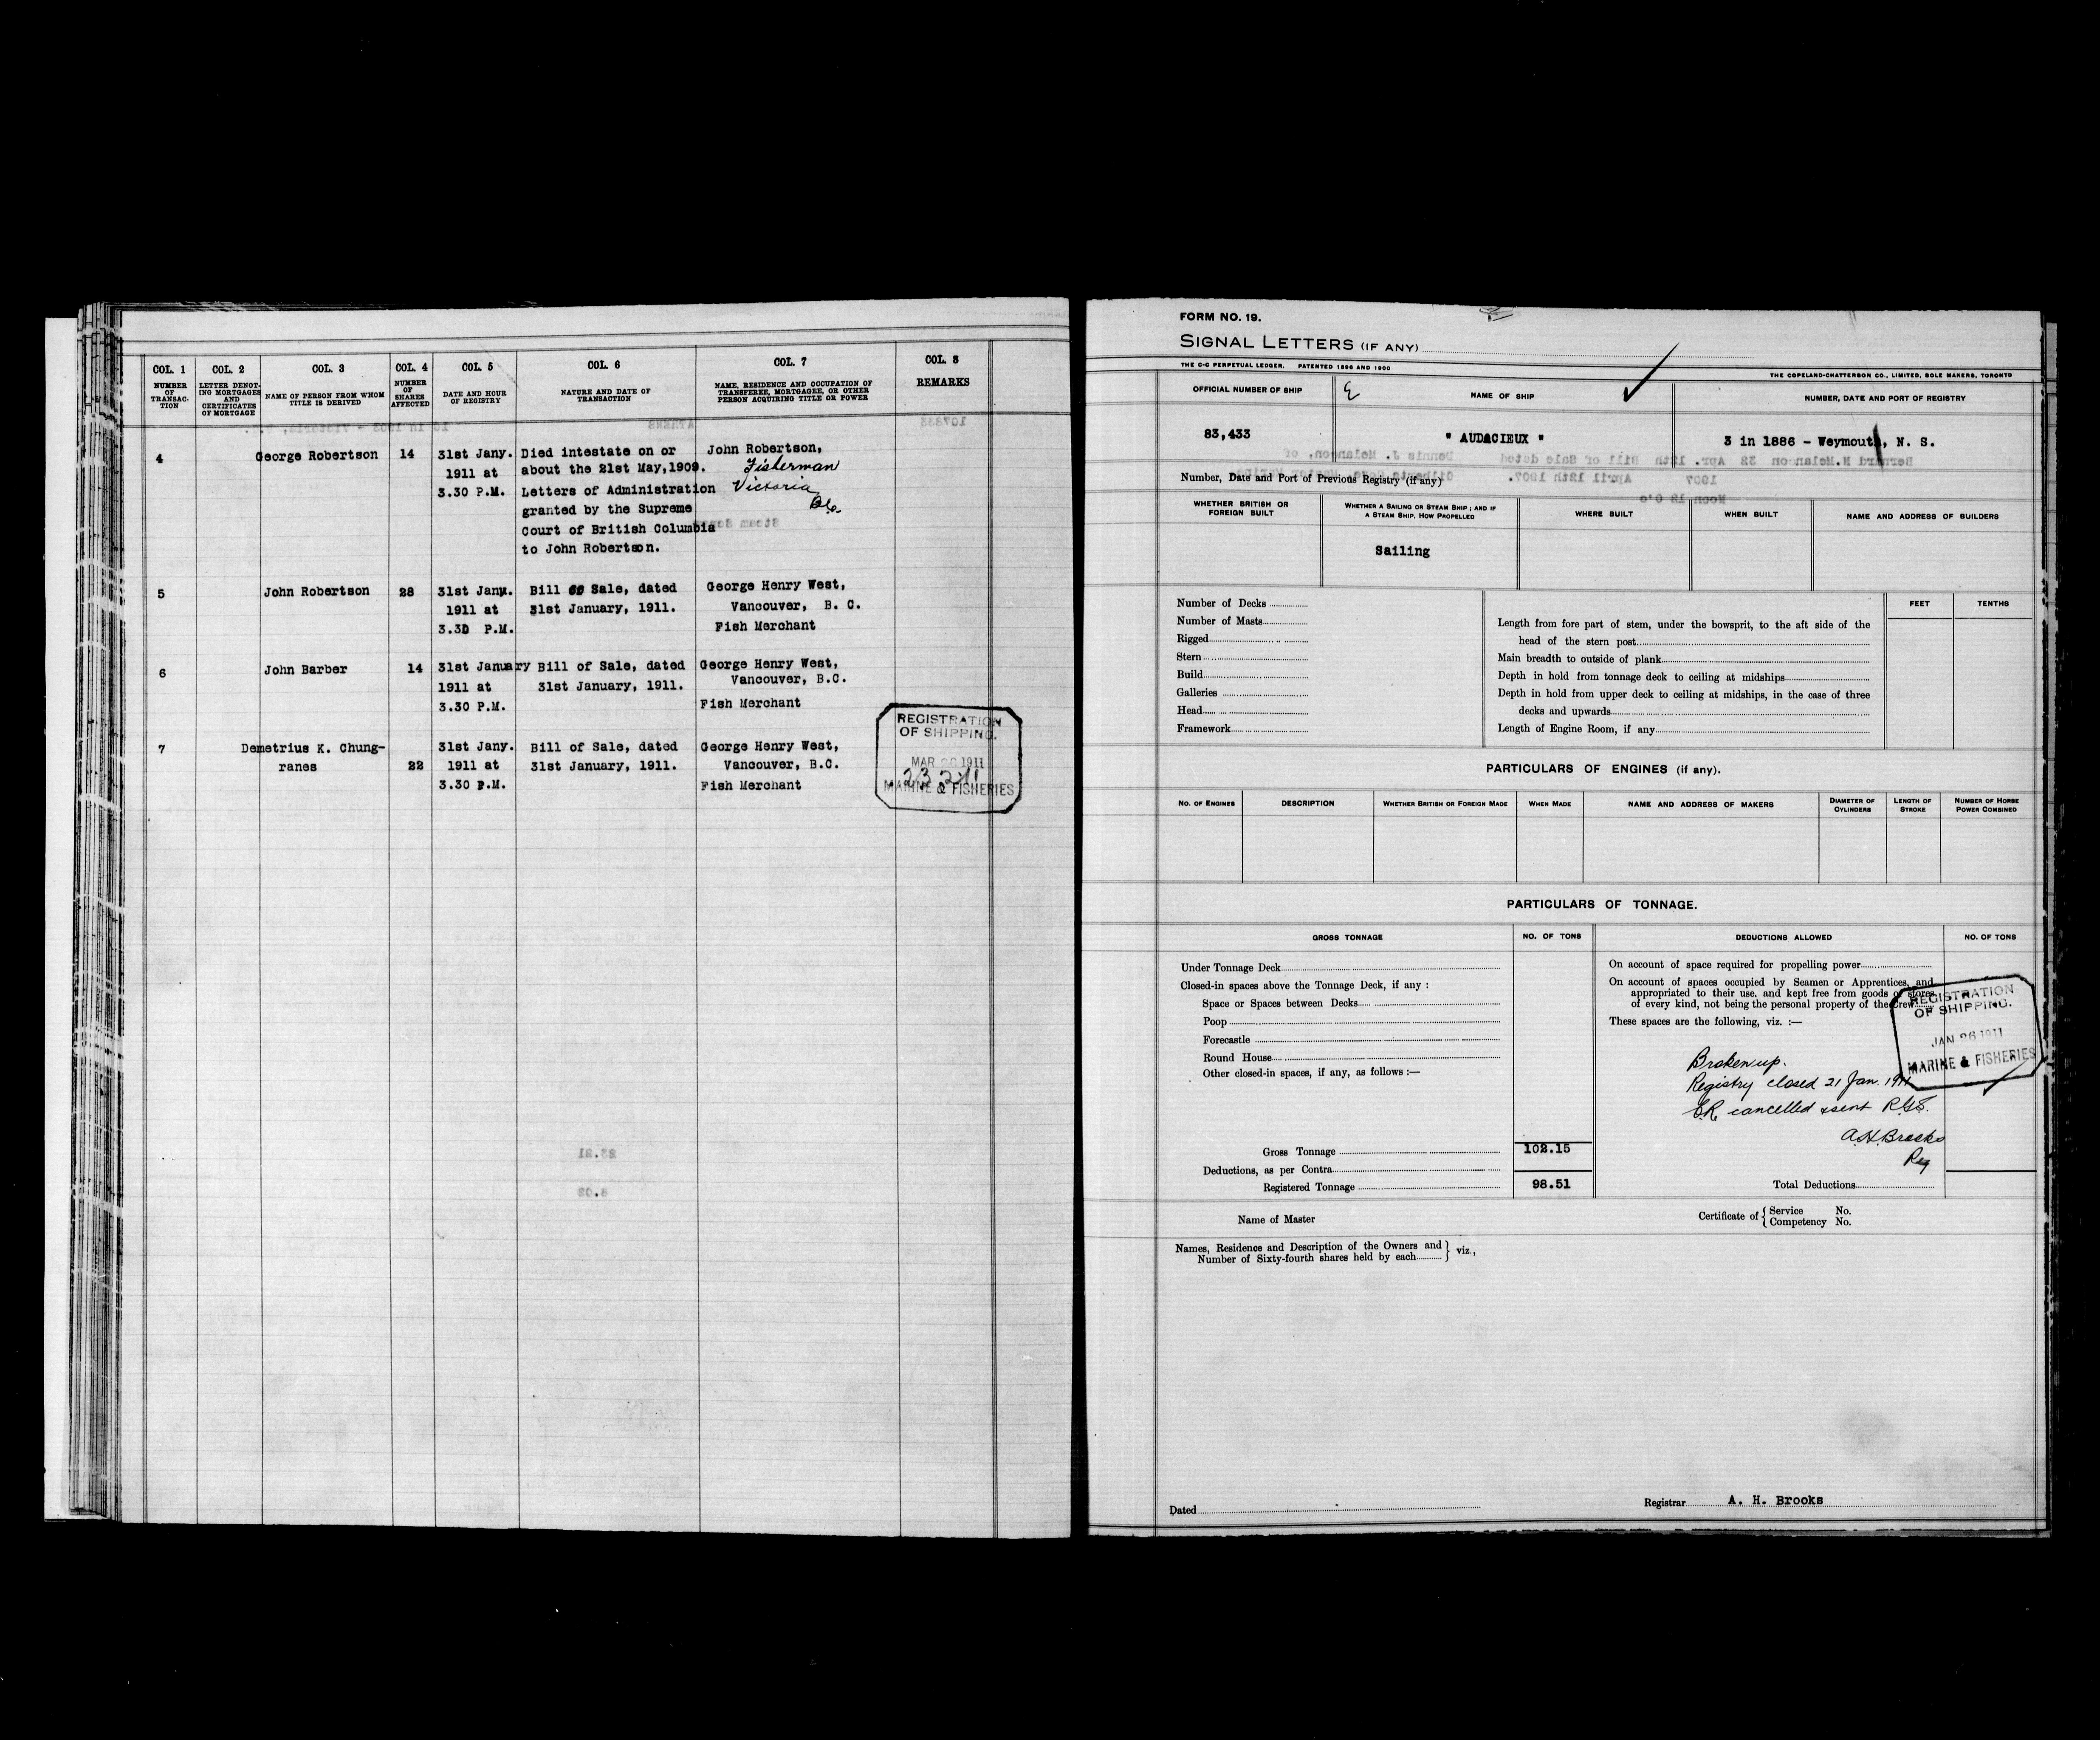 COL. 1 COL. 2 COL. 3 COL. 4 COL. 5 COL. 6 COL. 7 COL. 8
NUMBER OF TRANSAC-TION
LETTER DENOT-ING MORTGAGES AND CERTIFICATES OF MORTGAGE
NAME OF PERSON FROM WHOM TITLE IS DERIVED
NUMBER OF SHARES AFFECTED
DATE AND HOUR OF REGISTRY
NATURE AND DATE OF TRANSACTION
NAME, RESIDENCE AND OCCUPATION OF TRANSFEREE, MORTGAGEE, OR OTHER PERSON ACQUIRING TITLE OR POWER
REMARKS
4 George Robertson 14 31st Jany. Died intestate on or John Robertson,
1911 at about the 21st May,1909. Fisherman
3.30 P.M. Letters of Administration Victoria
granted by the Supreme B.C.
Court of British Columbia
to John Robertson.
5 John Robertson 28 31st Jany. Bill of Sale, dated George Henry West,
1911 at 31st January, 1911. Vancouver, B. C.
3.30 P.M. Fish Merchant
6 John Barber 14 31st January Bill of Sale, dated George Henry West,
1911 at 31st January, 1911. Vancouver, B.C.
3.30 P.M. Fish Merchant
7 Demetrius K. Chung- 31st Jany. Bill of Sale, dated George Henry West,
ranes 22 1911 at 31st January, 1911. Vancouver, B.C.
3.30 P.M. Fish Merchant
REGISTRATION
OF SHIPPING.
MAR 20 1911
23 2 11
MARINE & FISHERIES
FORM NO. 19.
SIGNAL LETTERS (IF ANY)
THE C-C PERPETUAL LEDGER. PATENTED 1896 AND 1900
THE COPELAND-CHATTERSON CO., LIMITED, SOLE MAKERS, TORONTO
OFFICIAL NUMBER OF SHIP NAME OF SHIP NUMBER, DATE AND PORT OF REGISTRY
83,433 " AUDACIEUX " 3 in 1886 - Weymouth, N. S.
Number, Date and Port of Previous Registry (if any)
WHETHER BRITISH OR FOREIGN BUILT
WHETHER A SAILING OR STEAM SHIP; AND IF A STEAM SHIP, HOW PROPELLED
WHERE BUILT
WHEN BUILT
NAME AND ADDRESS OF BUILDERS
Sailing
Number of Decks
Number of Masts
Rigged
Stern
Build
Galleries
Head
Framework
FEET TENTHS
Length from fore part of stem, under the bowsprit, to the aft side of the
head of the stern post
Main breadth to outside of plank
Depth in hold from tonnage deck to ceiling at midships
Depth in hold from upper deck to ceiling at midships, in the case of three
decks and upwards
Length of Engine Room, if any
PARTICULARS OF ENGINES (if any).
NO. OF ENGINES
DESCRIPTION
WHETHER BRITISH OR FOREIGN MADE
WHEN MADE
NAME AND ADDRESS OF MAKERS
DIAMETER OF CYLINDERS
LENGTH OF STROKE
NUMBER OF HORSE POWER COMBINED
PARTICULARS OF TONNAGE.
GROSS TONNAGE NO. OF TONS DEDUCTIONS ALLOWED NO. OF TONS
Under Tonnage Deck
Closed-in spaces above the Tonnage Deck, if any :
Space or Spaces between Decks
Poop
Forecastle
Round House
Other closed-in spaces, if any, as follows :—
Gross Tonnage 102.15
Deductions, as per Contra
Registered Tonnage 98.51
On account of space required for propelling power
On account of spaces occupied by Seamen or Apprentices, and
appropriated to their use, and kept free from goods or stores
of every kind, not being the personal property of the Crew
These spaces are the following, viz. :—
REGISTRATION
OF SHIPPING.
JAN 26 1911
MARINE & FISHERIES
Broken up.
Registry closed 21 Jan. 1911
C.R. cancelled & sent R.G.S.
A.H. Brooks
Reg
Total Deductions
Name of Master
Certificate of { Service No.
Competency No.
Names, Residence and Description of the Owners and
Number of Sixty-fourth shares held by each } viz.,
Dated
Registrar A. H. Brooks